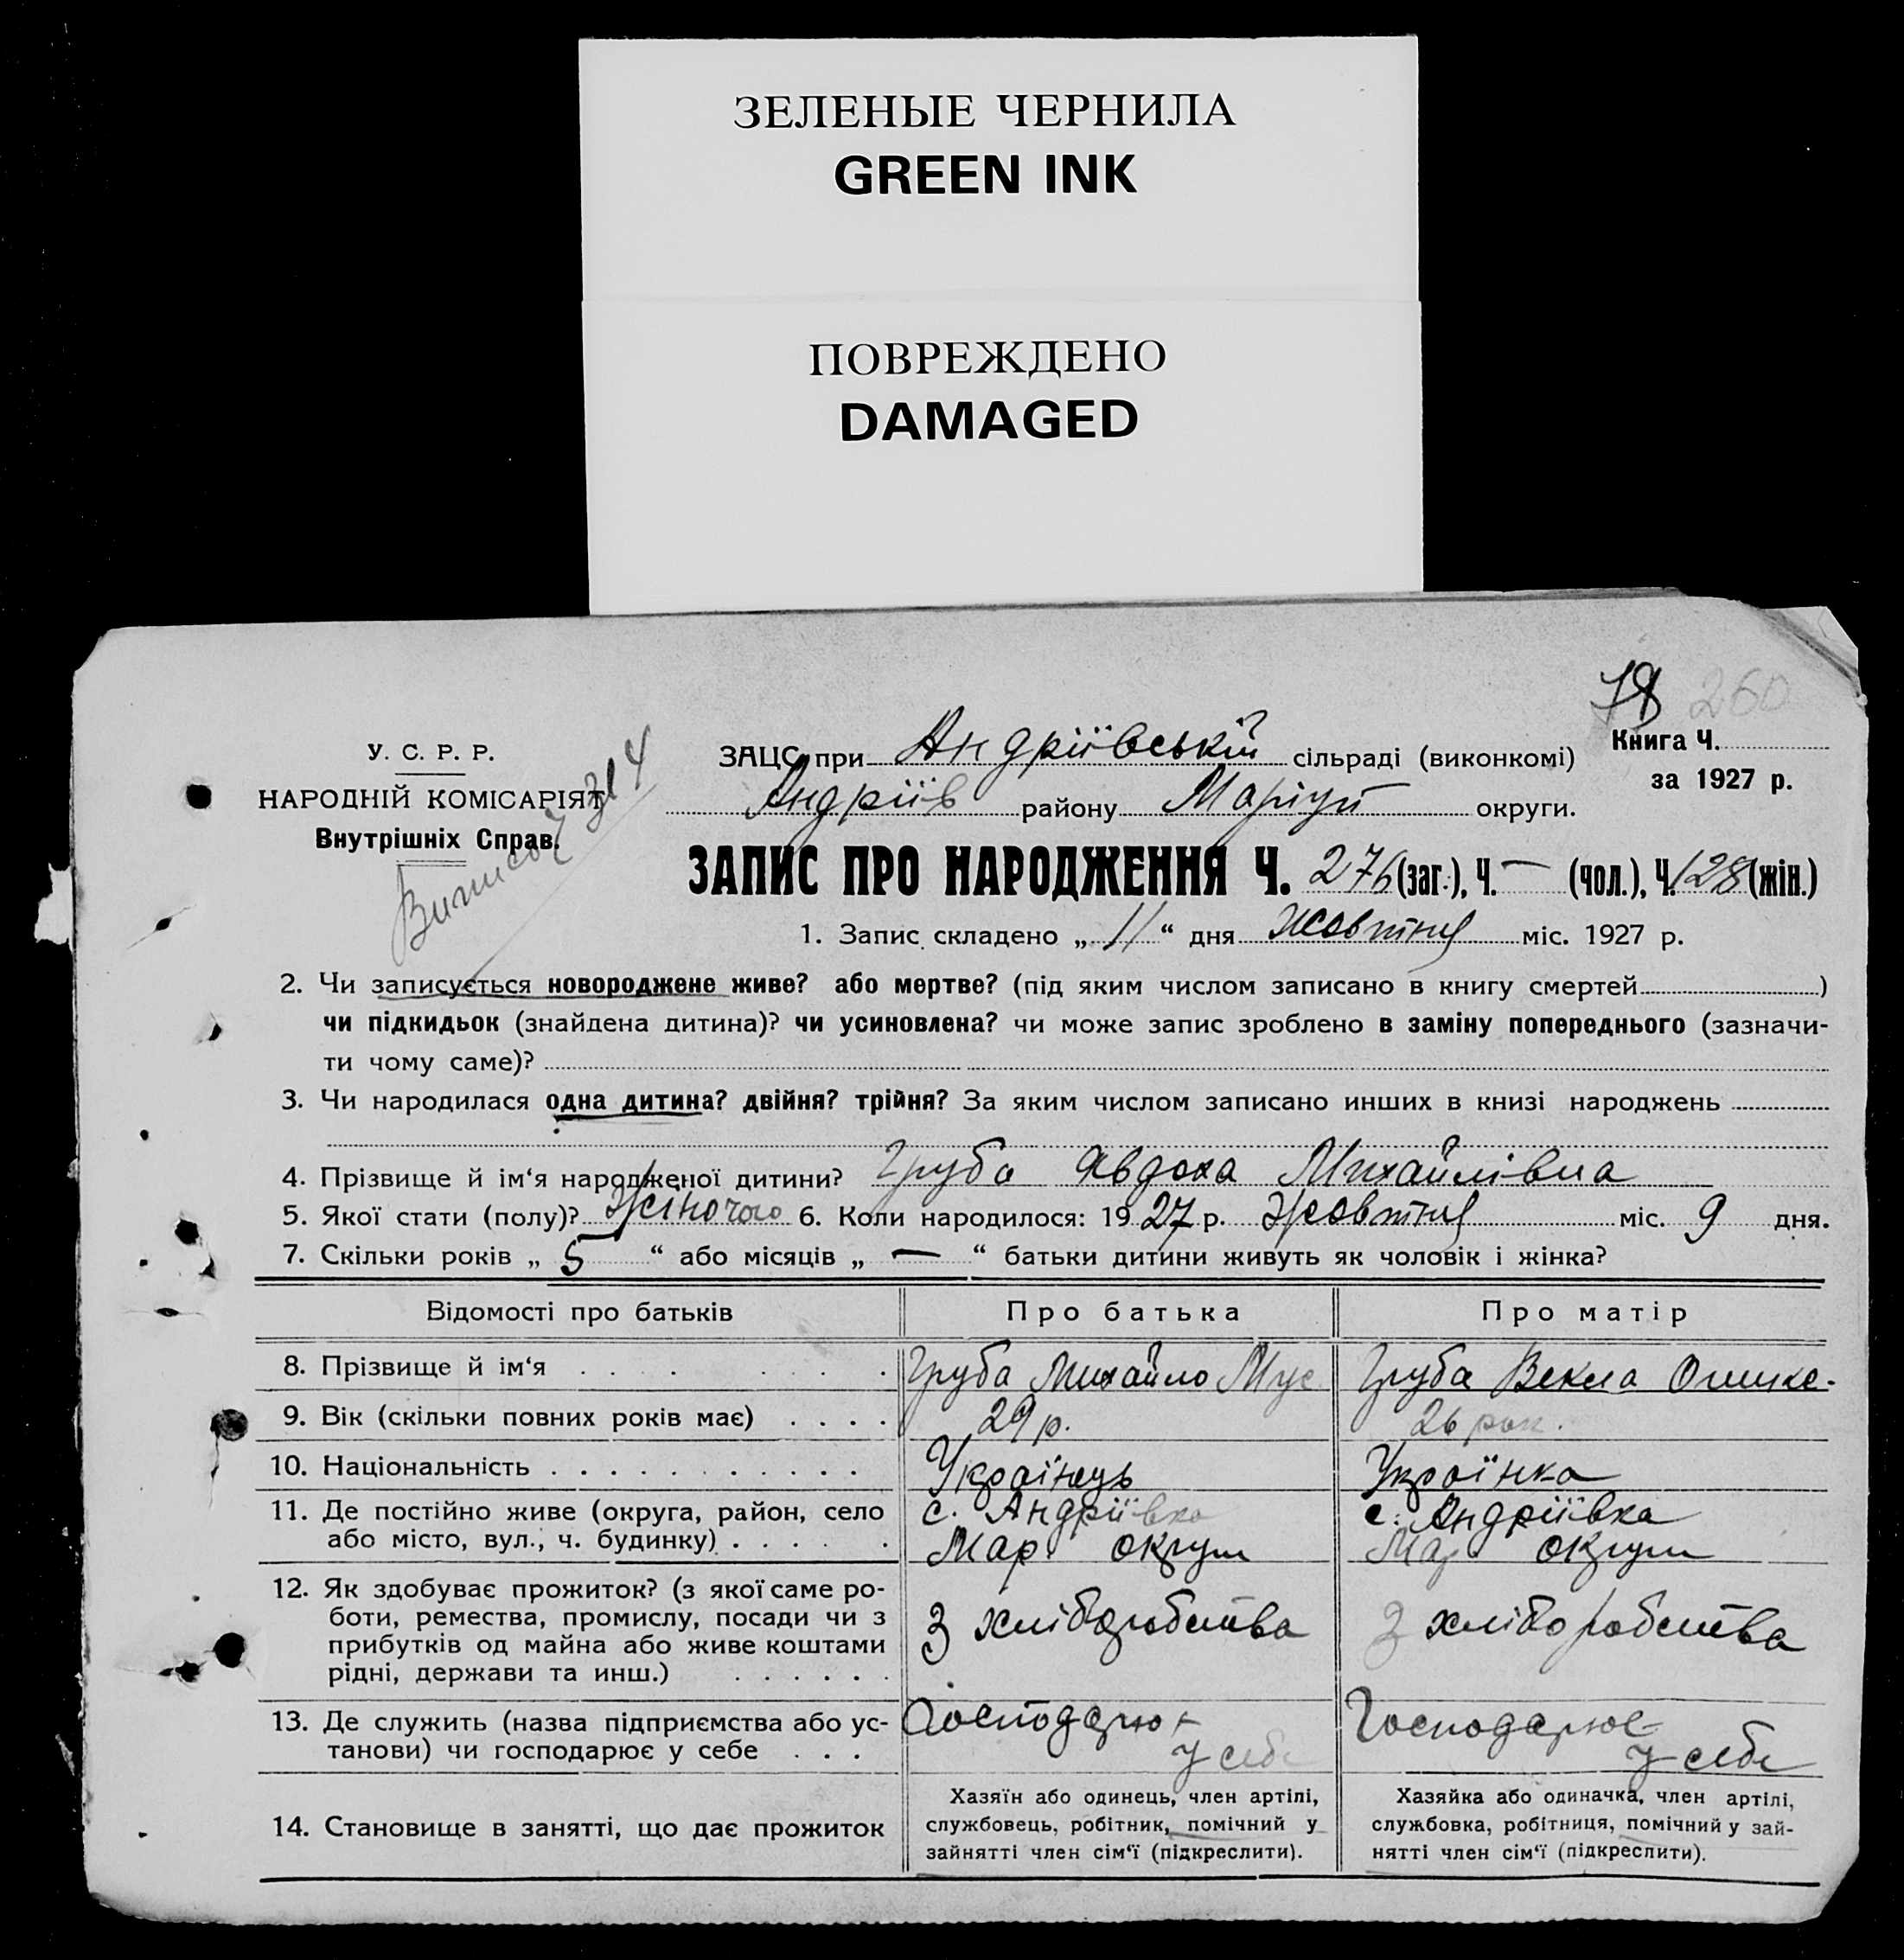 ЗЕЛЕНЫЕ ЧЕРНИЛА
GREEN INK
ПОВРЕЖДЕНО
DAMAGED
78 260
У. С. Р. Р.
НАРОДНІЙ КОМІСАРІЯТ
Внутрішніх Справ.
ЗАЦС при Андріївській сільраді (виконкомі)
Книга Ч.
Андріїв району Маріуп округи.
за 1927 р.
ЗАПИС ПРО НАРОДЖЕННЯ Ч. 276 (заг.), Ч. — (чол.), Ч. 128 (жін.)
1. Запис складено „ 11 “ дня жовтня міс. 1927 р.
2. Чи записується новороджене живе? або мертве? (під яким числом записано в книгу смертей )
чи підкидьок (знайдена дитина)? чи усиновлена? чи може запис зроблено в заміну попереднього (зазначи-
ти чому саме)?
3. Чи народилася одна дитина? двійня? трійня? За яким числом записано инших в книзі народжень
4. Прізвище й ім‘я народженої дитини? Груба Явдоха Михайлівна
5. Якої стати (полу)? Жіночого 6. Коли народилося: 1927 р. Жовтня міс. 9 дня.
7. Скільки років „ 5 “ або місяців „ — “ батьки дитини живуть як чоловік і жінка?
Відомості про батьків Про батька Про матір
8. Прізвище й ім‘я . . . . . . Груба Михайло Мус Груба Векла
9. Вік (скільки повних років має) . . . . 29 р. 26 рок.
10. Національність . . . . . . . . . . . Українець Українка
11. Де постійно живе (округа, район, село с. Андріївка с. Андріївка
або місто, вул., ч. будинку) . . . . . Мар округи Мар округи
12. Як здобуває прожиток? (з якої саме ро-
боти, ремества, промислу, посади чи з З хліборобства З хліборобства
прибутків од майна або живе коштами
рідні, держави та инш.) . . . . . .
13. Де служить (назва підприємства або ус- Господарює Господарює
танови) чи господарює у себе . . . у себе у себе
14. Становище в занятті, що дає прожиток
Хазяїн або одинець, член артілі,
службовець, робітник, помічний у
зайнятті член сім‘ї (підкреслити).
Хазяйка або одиначка, член артілі,
службовка, робітниця, помічний у зай-
нятті член сім‘ї (підкреслити).